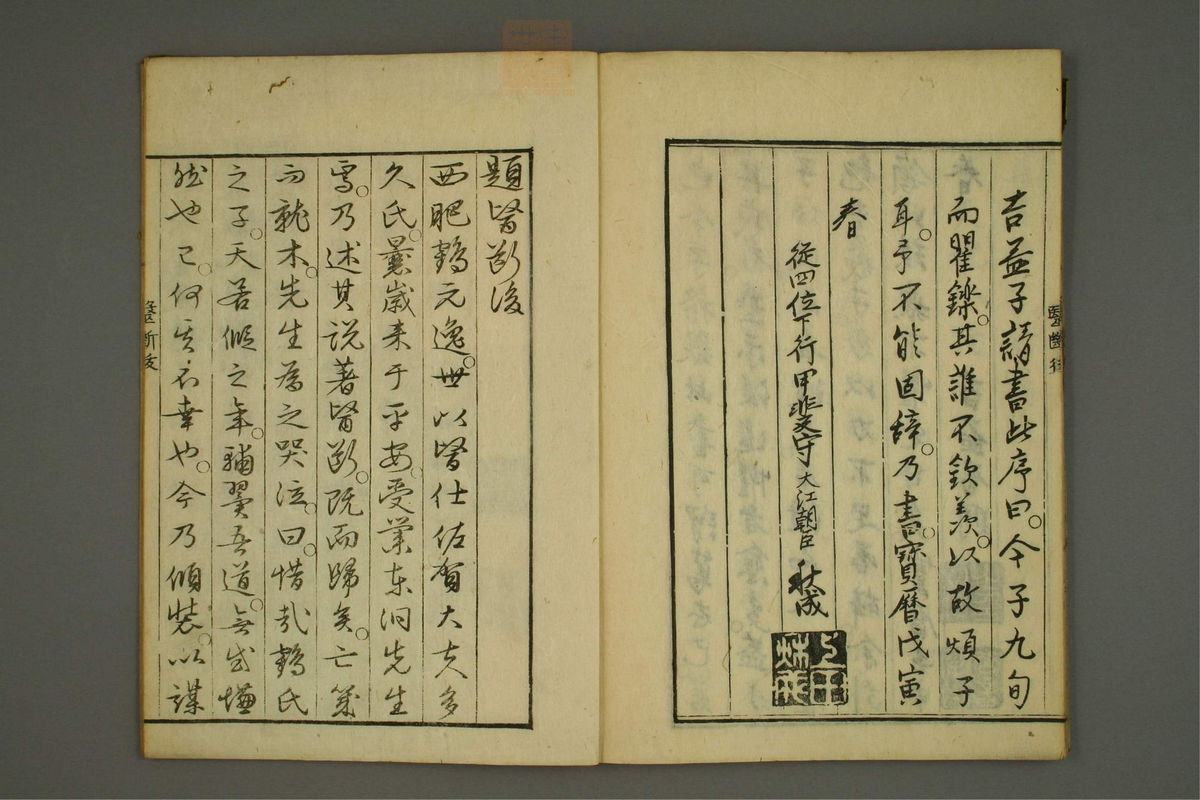 吉益子請書此序曰。今子九旬
而矍鑠。其誰不欽羨。以故煩子
耳。予不能固辞。乃書。寶曆戊寅
春
從四位下行甲斐守大江朝臣秋成
題醫斷後
西肥鶴元逸。世以醫仕佐賀大夫多
久氏。曩歳来于平安。受業东洞先生
焉。乃述其説著醫断。既而歸矣。亡幾
而就木。先生為之哭泣。曰。惜哉鶴氏
之子。天若假之年。輔翼吾道。無感慊
然也已。何其不幸也。今乃傾装。以謀